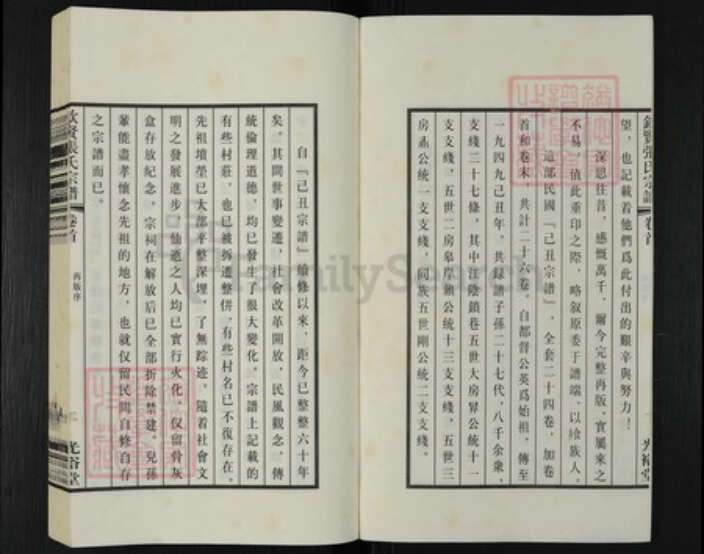 望，也記載着他們爲此付出的艱辛與努力！
深思往昔，感慨萬千，爾今完整再版，實屬來之
不易，值此重印之際，略叙原委于譜端，以飨族人。
這部民國『己丑宗譜』，全套二十四卷，加卷
首和卷末，共計二十六卷，自都督公英爲始祖，傳至
一九四九己丑年，共録譜子孫二十七代，八千余衆，
支綫二十七條。其中江陰鎖巷五世大房 公統十一
支支綫，五世二房 岸 公統十三支支綫，五世三
房鼎公統一支支綫，同族五世剛公統二支支綫。
張氏宗譜 卷首
光裕堂
自『己丑宗譜』續修以來，距今已整整六十年
矣。其間世事變遷，社會改革開放，民風觀念，傳
統倫理道德，均已發生了很大變化。宗譜上記載的
有些村莊，也已被拆遷整併，有些村名已不復存在。
先祖墳塋已大部平整深埋，了無踪迹。隨着社會文
明之發展進步，仙逝之人均已實行火化，仅留骨灰
盒存放紀念。宗祠在解放后已全部折除禁建。兒孫
輩能盡孝懷念先祖的地方，也就仅留民間自修自存
之宗譜而已。
賢張氏宗譜 卷首 再版序
光裕堂
FamilySearch